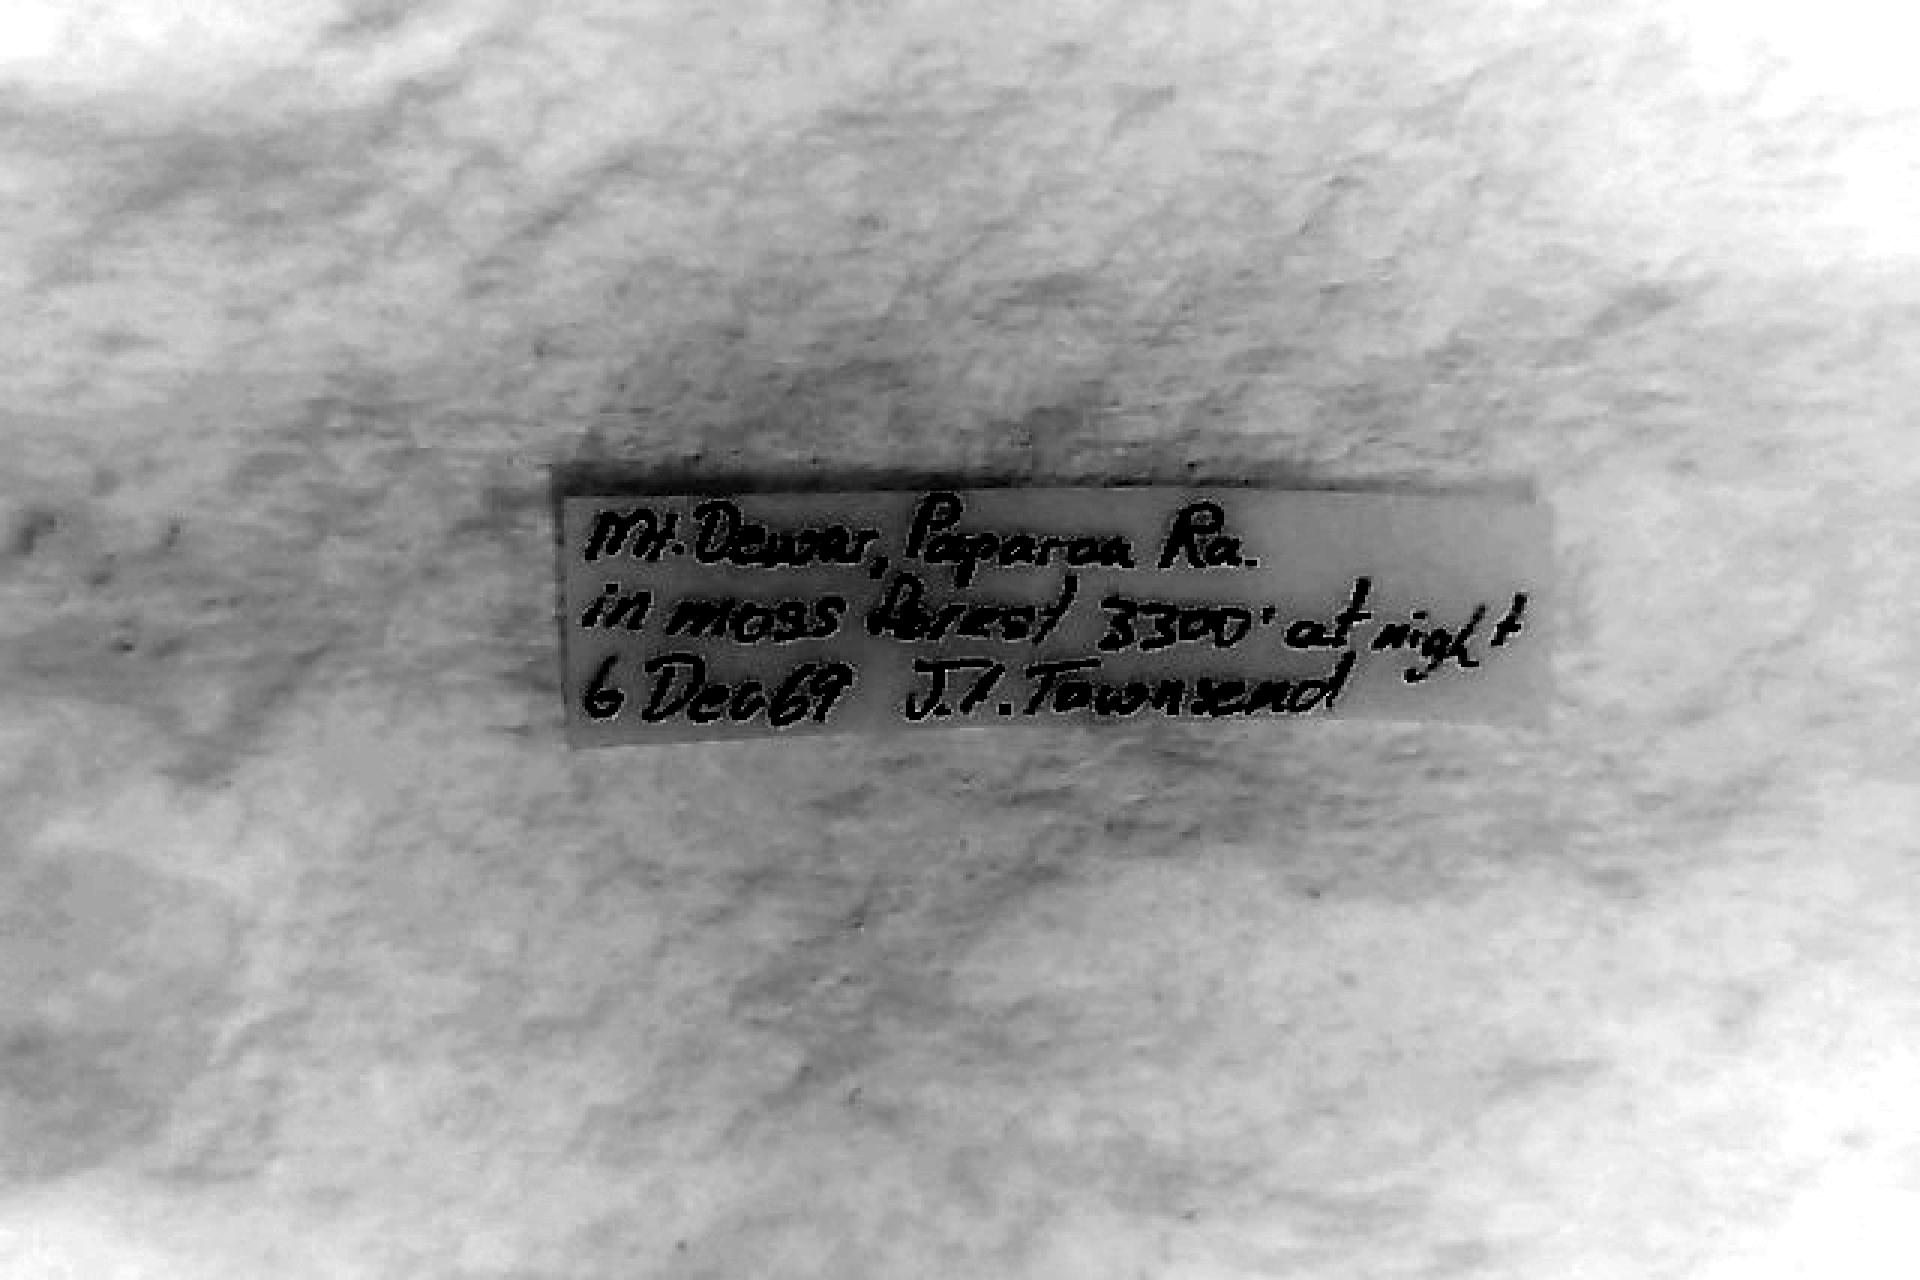 Mt. Dewar, Paparoa Ra.
in moss forest 3300' at night
6 Dec 69 J.I. Townsend